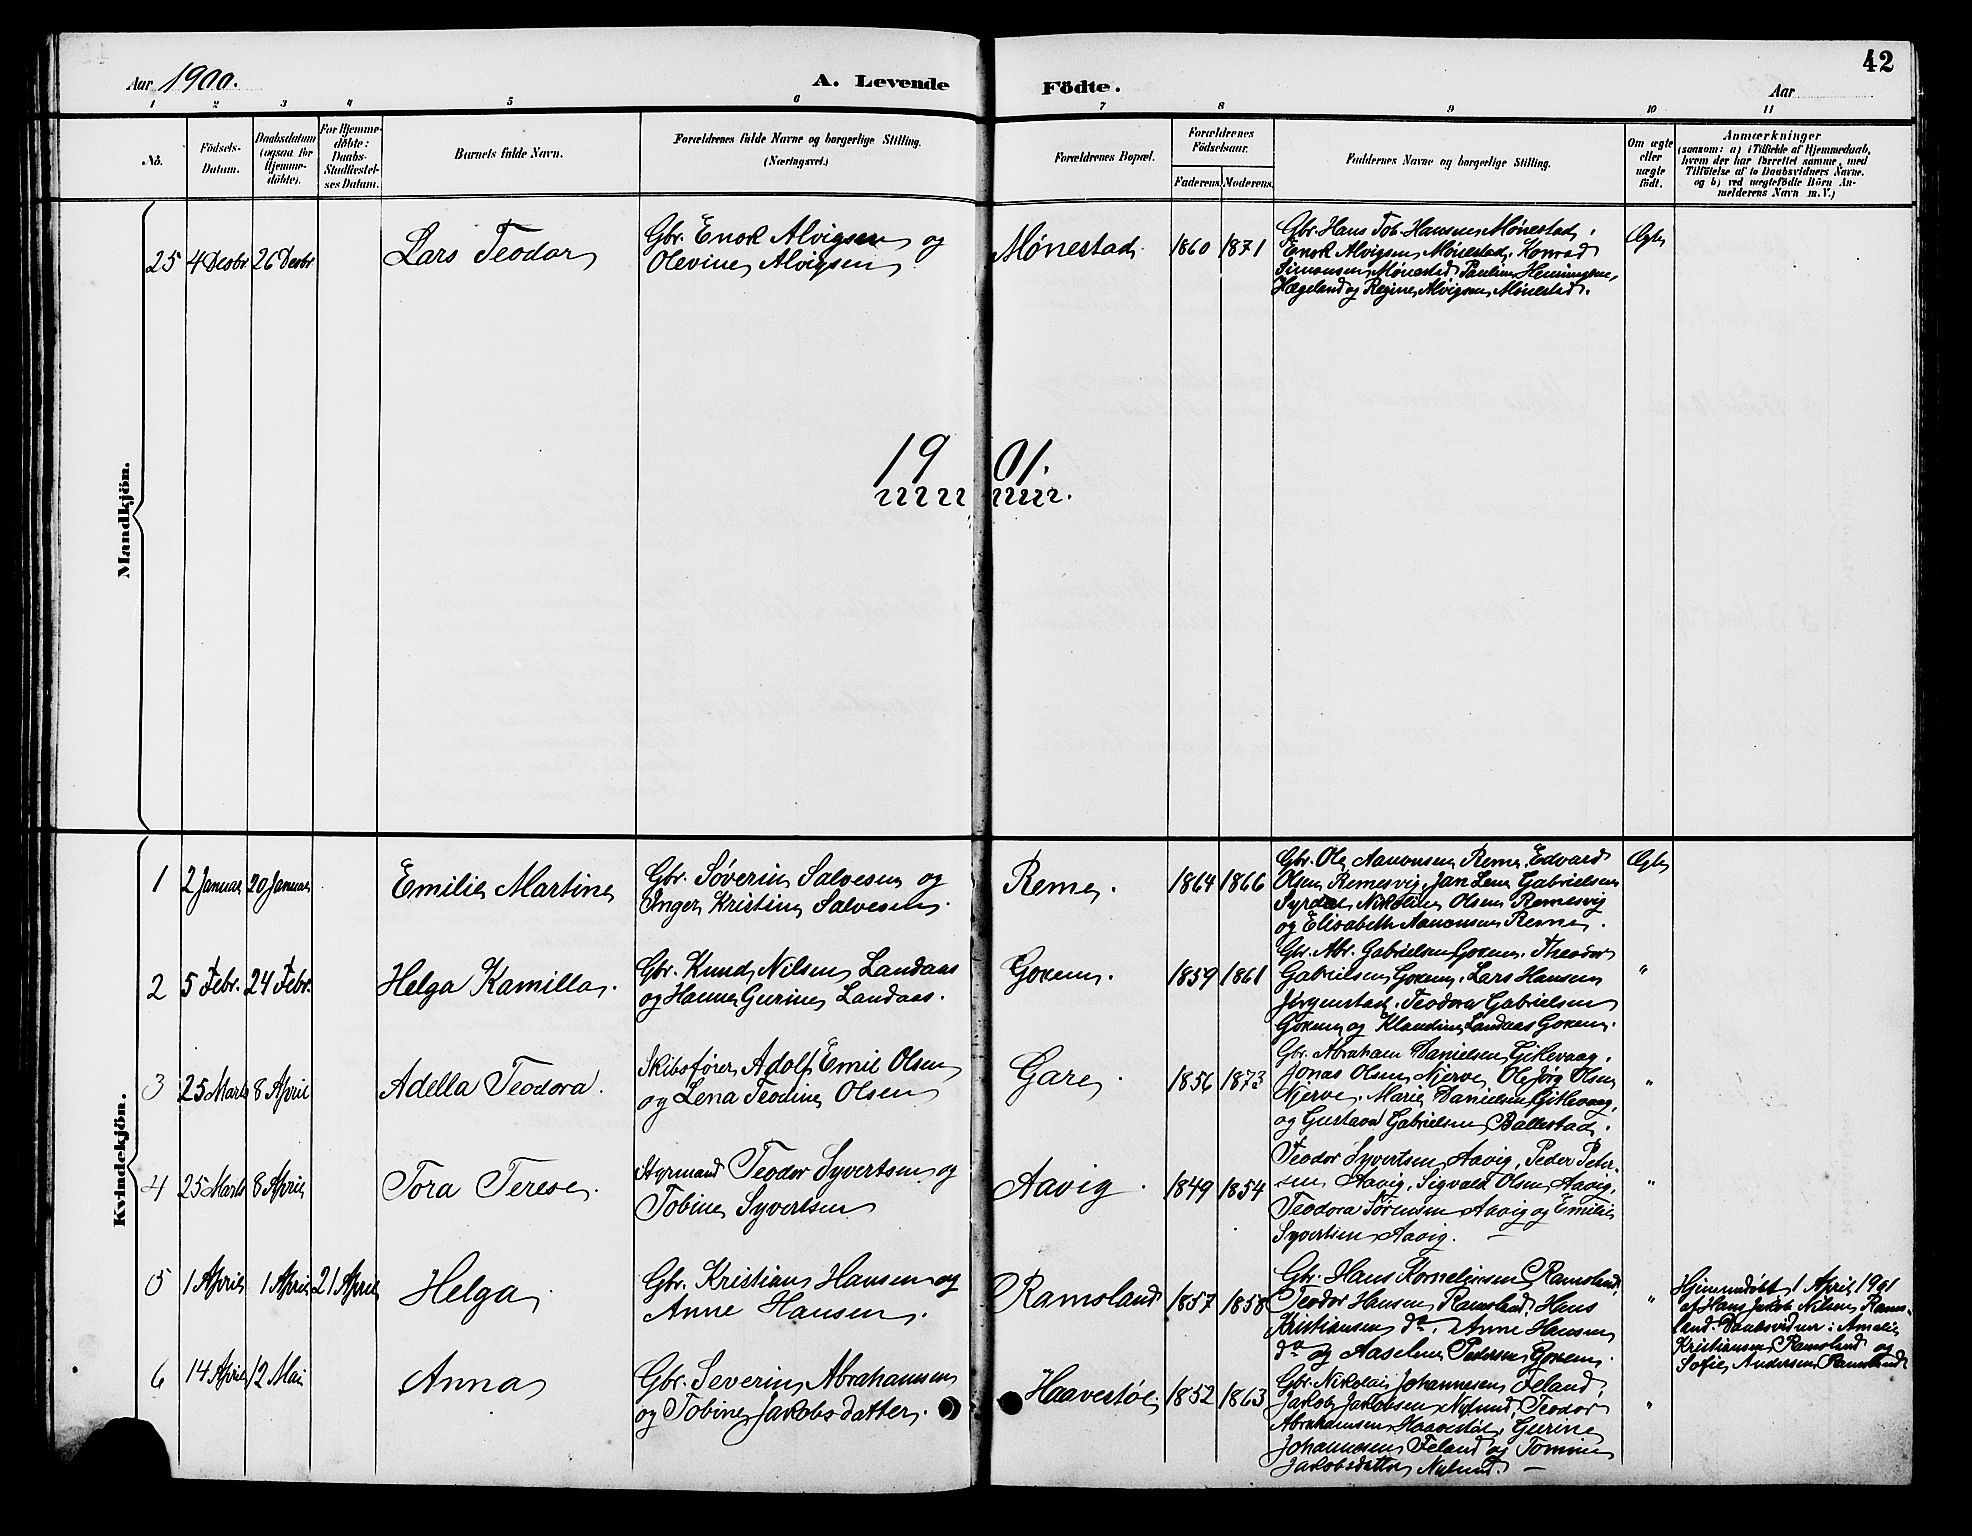 42
Aar 1900.
A. Levende Födte.
Aar
1 2 3 4 5 6 7 8 9 10 11
No.
Födsels-
Datum.
Daabsdatum
(ogsaa for
Hjemme-
döbte).
For Hjemme-
döbte:
Daabs-
Stadfæstel-
ses Datum.
Barnets fulde Navn.
Forældrenes fulde Navne og borgerlige Stilling.
(Næringsvei.)
Forældrenes Bopæl.
Forældrenes
Födselsaar.
Faderens. Moderens.
Faddernes Navne og borgerlige Stilling.
Om ægte
eller
uægte
födt.
Anmærkninger
(saasom: a) i Tilfælde af Hjemmedaab,
hvem der har forrettet samme, med
Tilföielse af to Daabsvidners Navne.
og b) ved uægtefödte Börn An-
melderens Navn m. V.)
Mandkjön.
25 4 Desbr 26 Desbr
Lars Teodor
Gbr. Enok Alvigsen og
Olevine Alvigsen
Mønestad
1860 1871
Gbr. Hans Tob. Hansen Mønestad,
Enok Alvigsen Mønestad, Konrad
Simonsen Mønestad Pauline Henningsen,
Hægeland og Regine Alvigsen Mønestad.
Ægte
1901.
Kvindekjön.
1 2 Januar 20 Januar
Emilie Martine
Gbr. Søverin Salvesen og
Inger Kristine Salvesen.
Reme.
1864 1866
Gbr. Ole Aanonsen Reme, Edvard
Olsen Remesvig, Jan Lene Gabrielsen
Syrdal Nikoline Olsen Remesvig
og Elisabeth Aanonsen Reme.
Ægte
2 5 Febr. 24 Febr.
Helga Kamilla.
Gbr. Knud Nilsen Landaas
og Hanne Gurine Landaas.
Goxem.
1859 1861
Gbr. Abr. Gabrielsen Goxem. Theodor
Gabrielsen Goxem. Lars Hansen
Jørgenstad. Teodora Gabrielsen
Goxem og Klaudine Landaas Goxem.
"
3 25 Marts 8 April
Adella Teodora.
Skibsfører Adolf Emil Olsen
og Lena Teodine Olsen
Gare.
1856 1873
Gbr. Abraham Danielsen Gitlevaag.
Jonas Olsen Njerve, Ole Jørg Olsen
Njerve, Marie Danielsen Gitlevaag,
og Gustava Gabrielsen Ballestad.
"
4 25 Marts 8 April
Tora Terese.
Styrmand Teodor Syvertsen og
Tobine Syvertsen
Aavig.
1849 1854
Teodor Syvertsen Aavig, Peder Peter-
sen Aavig, Sigvald Olsen Aavig,
Teodora Sørensen Aavig og Emilie
Syvertsen Aavig.
"
5 1 April 1 April 21 April
Helga
Gbr. Kristian Hansen og
Anne Hansen.
Ramsland
1857 1858
Gbr. Hans Korneliussen Ramsland,
Teodor Hansen Ramsland, Hans
Kristiansen do, Anne Hansen
do og Aaselene Pedersen Goxem.
"
Hjemmedøbt 1 April 1901
af Hans Jakob Nilsen Rams-
land. Daabsvidner: Amalie
Kristiansen Ramsland og
Sofie Andersen Ramsland
6 14 April 12 Mai
Anna
Gbr. Severin Abrahamsen
og Tobine Jakobsdatter.
Haavestøl
1852 1863
Gbr. Nikolai Johannesen Feland,
Jakob Jakobsen Nylund, Teodor
Abrahamsen Haavestøl, Gurine
Johannesen Feland og Tomine
Jakobsdatter Nylund.
"